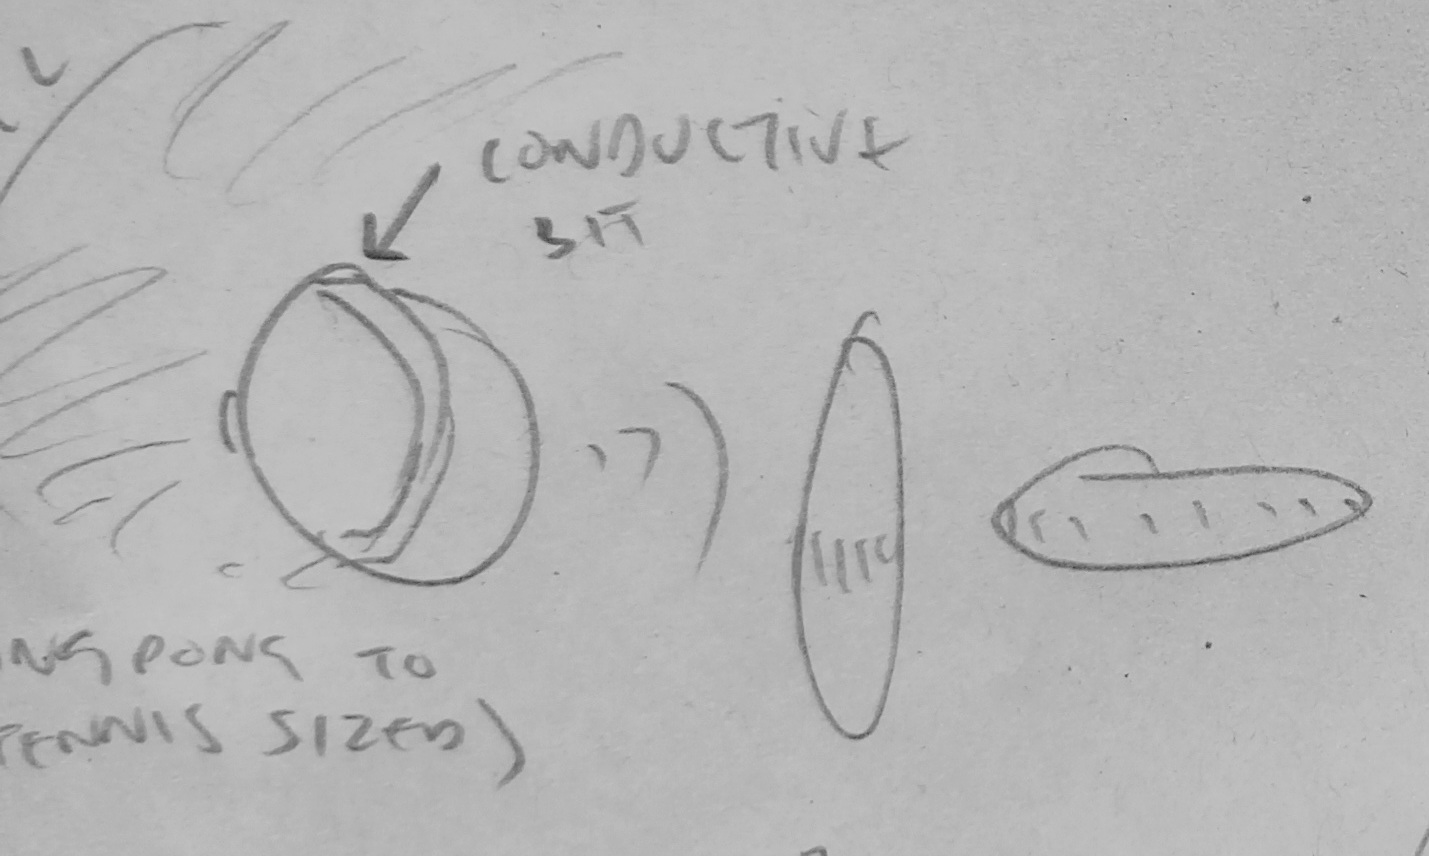 CONDUCTIVE
BIT
NGPONG TO
TENNIS SIZED)